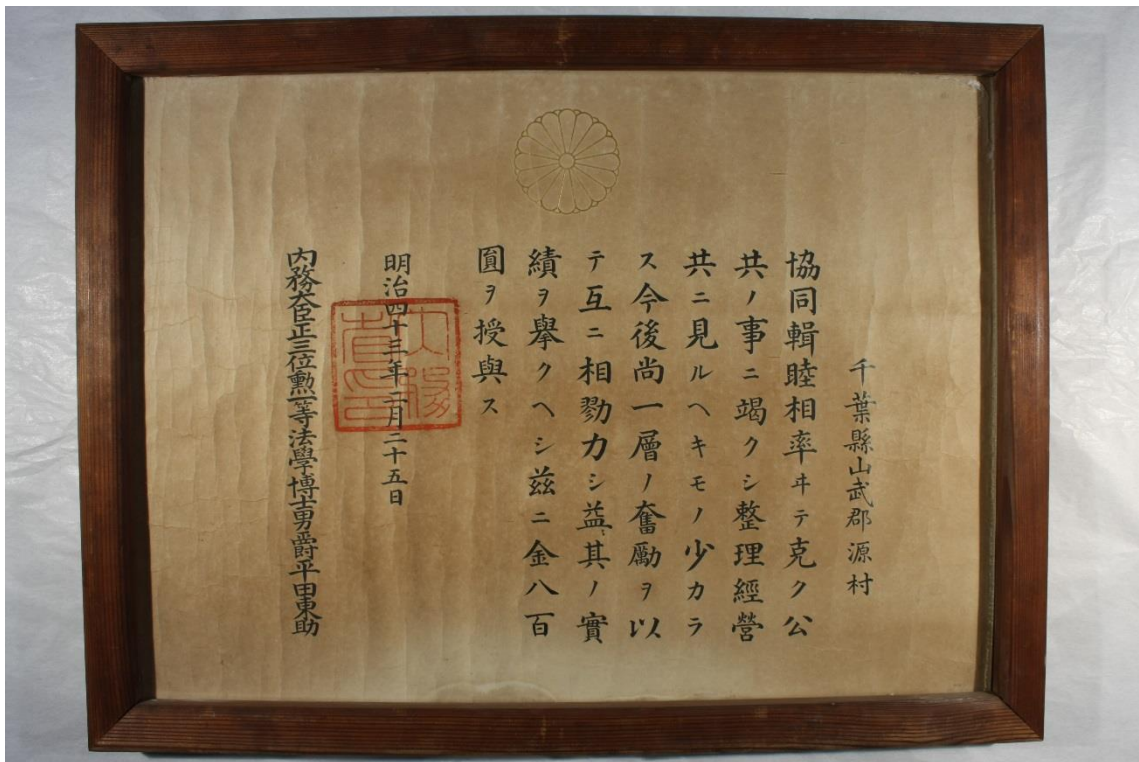 千葉縣山武郡源村
協同輯睦相率ヰテ克ク公
共ノ事ニ竭クシ整理經營
共ニ見ルヘキモノ少カラ
ス今後尚一層ノ奮勵ヲ以
テ互ニ相勠力シ益〻其ノ實
績ヲ擧クヘシ茲ニ金八百
圓ヲ授與ス
明治四十三年二月二十五日
内務大臣正三位勲一等法學博士男爵平田東助
内務
省印